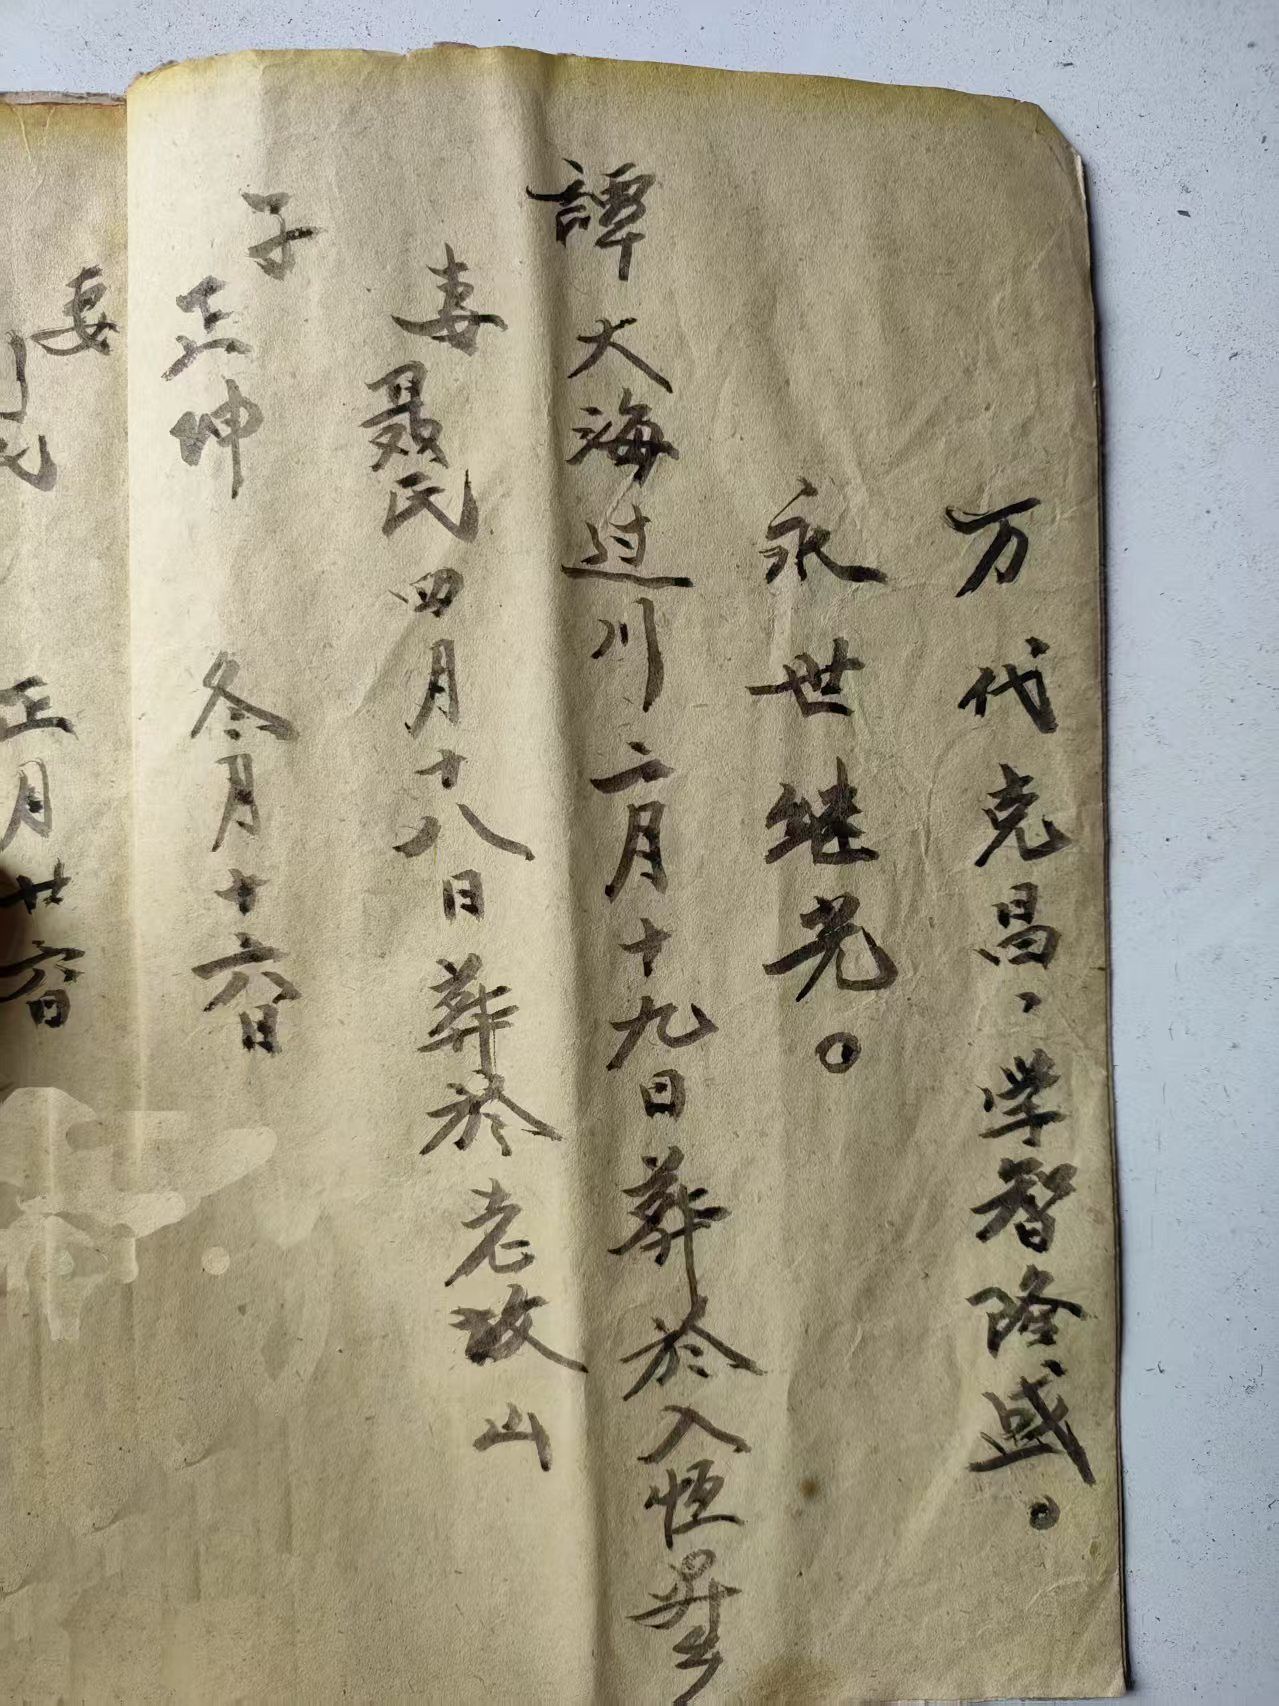 万代克昌，学智隆盛。
永世继光。
譚大海过川二月十九日葬於入恒昇
妻聂氏四月十八日葬於老坟山
子
正坤 冬月十六日
妻
氏 正月廿六日